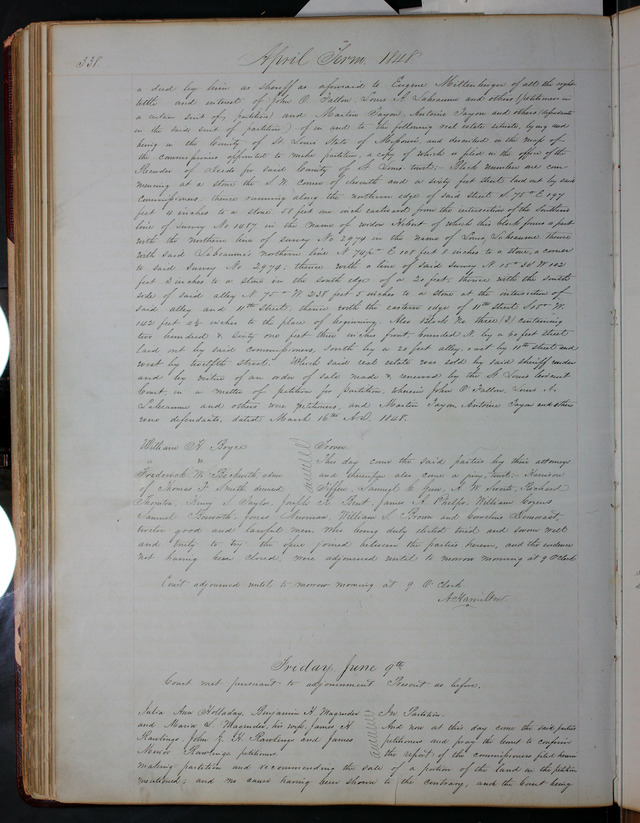 338
April Term 1848
a deed by him as Sheriff as aforesaid to Eugene Miltenberger of all the right
title and interest of John O. Fallon, Louis A. Labeaume and others (petitioners in
a certain suit of partition) and Martin Jayon, Antoine Jayon and others (defendants
in the said suit of partition) of in and to the following real estate situate, lying and
being in the County of St Louis State of Missouri, and described in the map of
the commissioners appointed to make partition, a copy of which is filed in the office of the
Recorder of deeds for said County of St Louis towit: Block number one com-
mencing at a stone the S.W. corner of eleventh and a sixty feet street laid out by said
commissioners thence running along the northern edge of said Street S. 75° E 197
feet 10 inches to a stone 58 feet one inch eastward from the intersection of the Southern
line of Survey No 1087 in the name of widow Hebert of which this block forms a part
with the northern line of Survey No 2974 in the name of Louis Labeaume thence
with said Labeaume's northern line N 74½° E 101 feet 8 inches to a stone, a corner
to said Survey No 2974; thence with a line of said Survey N 15° 30' W 102
feet 8 inches to a stone in the south edge of a 20 feet; thence with the south
side of said alley N 75° W 238 feet 5 inches to a stone at the intersection of
said alley and 11th Street; thence with the eastern edge of 11th Street S 15° W
142 feet 2½ inches to the place of beginning. Also Block No three (3) containing
two hundred & sixty one feet three inches front bounded N. by a 60 feet street
laid out by said commissioners, South by a 20 feet alley, east by 11th street and
west by twelfth street. Which said real estate was sold by said sheriff under
and by virtue of an order of sale made & renewed by the St Louis Circuit
Court, in a matter of petition for partition, wherein John O Fallon, Louis A.
Labeaume and others were petitioners, and Martin Jayon, Antoine Jayon and others
were defendants, dated March 16th A.D. 1848.
William H. Boyce
Trover
This day come the said parties by their attorneys
Frederick W. Beckwith admr
and thereupon also come a jury, towit: Harrison
of Thomas F. Smith deceased
Giffen, Samuel C. Gow, A. W. Smith, Richard
Thornton, Henry S. Taylor, Joseph K. Bent, James A. Phelps, William Cozens
Samuel Bosworth, Jones Newman, William S. Brown and Cornelius Demorast,
twelve good and lawful men, who being duly elected tried and sworn well
and truly to try the issue joined between the parties herein, and the evidence
not having been closed, were adjourned until to morrow morning at 9 O'Clock
Court adjourned until to-morrow morning at 9 O.Clock
A Hamilton
Friday June 9th
Court met pursuant to adjournment Present as before.
Julia Ann Holladay, Benjamin H. Magruder
In Partition.
and Maria L. Magruder his wife, James H
And now at this day come the said parties
Rawlings, John G. H Rawlings and James
petitioners and pray the Court to confirm
Minor Rawlings petitioners
the report of the commissioners filed herein
making partition and recommending the sale of a portion of the land in the petition
mentioned; and no cause having been shown to the contrary, and the Court being